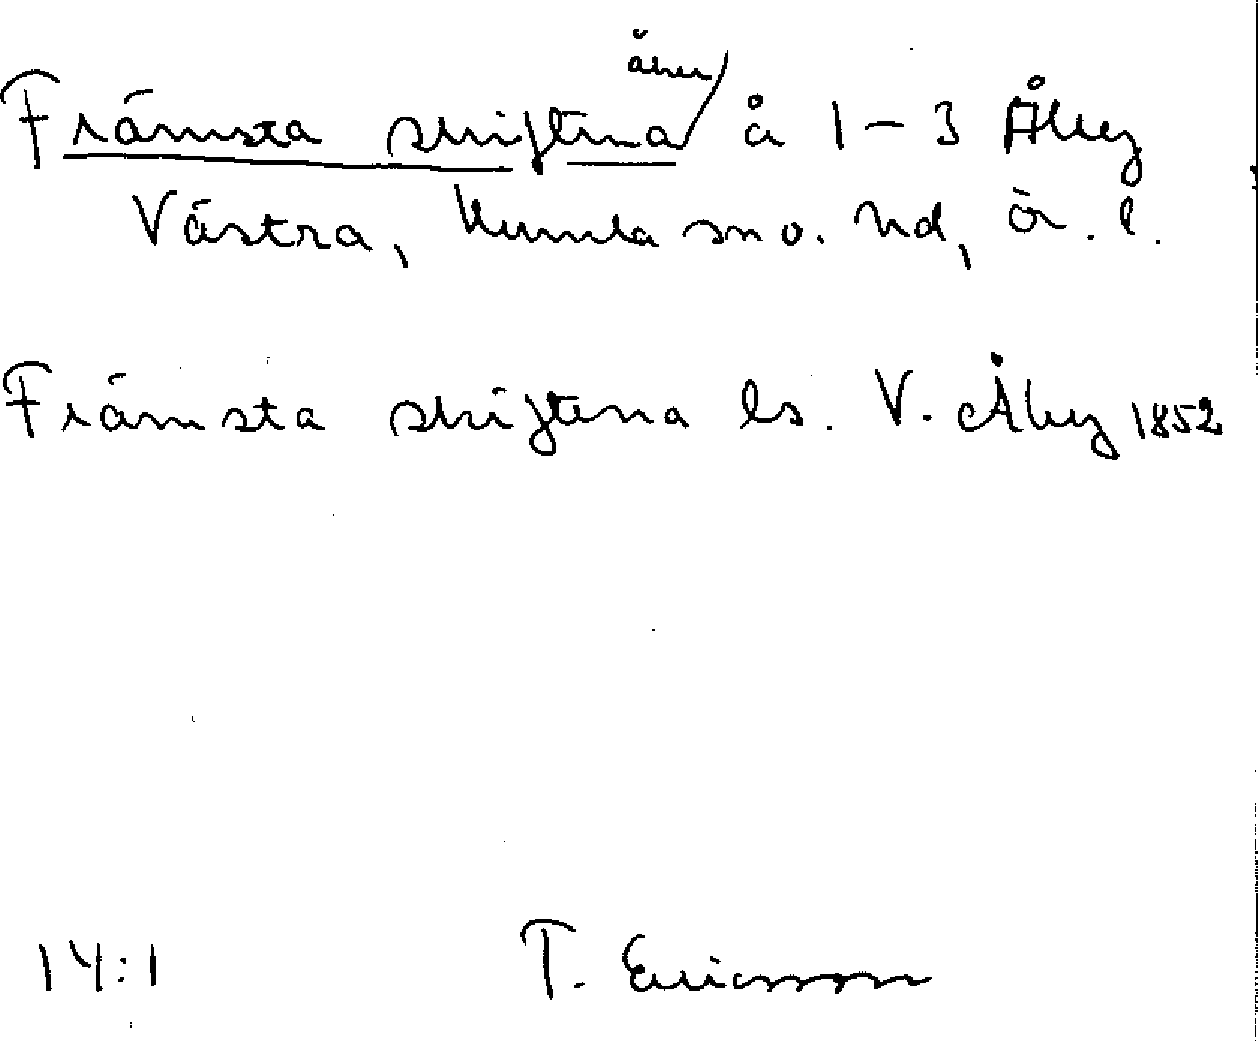 Främsta skiftena åker/ å 1-3 Åby
Västra, Kumla sn o. hd, Ör. l.
Främsta skiftena ls. V. Åby 1852
14:1 T. Ericsson